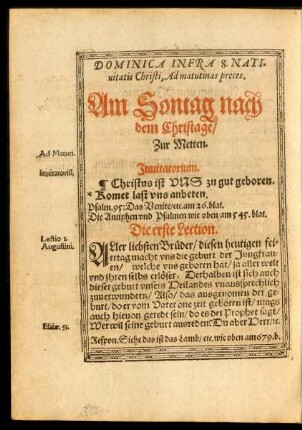 DOMINICA INFRA 8. NATI-
uitatis Christi, Ad matutinas preces.
Am Sontag nach
dem Christage/
Zur Metten.
Ad Matuti.
Inuitatorium.
Inuitatoriū.
¶ Christus ist VNS zu gut geboren.
* Komet last vns anbeten.
Psalm. 95: Das Venite/etc. am 26. blat.
Die Antiphen vnd Psalmen wie oben am 545. blat.
Die erste Lection.
Lectio 1.
Augustini.
ALler liebsten Brüder/ diesen heutigen fei-
ertag macht vns die geburt der Jungfrau-
en/ welche vns geboren hat/ ja aller welt
vnd jhren selbs erlöser. Derhalben ist sich auch
dieser geburt vnsers Heilandes vnaussprechlich
zuuerwundern/ Also/ das ausgenomen der ge-
burt/ do er vom Vater one zeit geboren ist/ nichts
auch hieuon geredt sein/ do es der Prophet sagt/
Esaiæ. 53.
Wer wil seine geburt ausreden? Du aber Herr/etc.
Respon. Sicht das ist das Lamb/ etc. wie oben am 679. b.